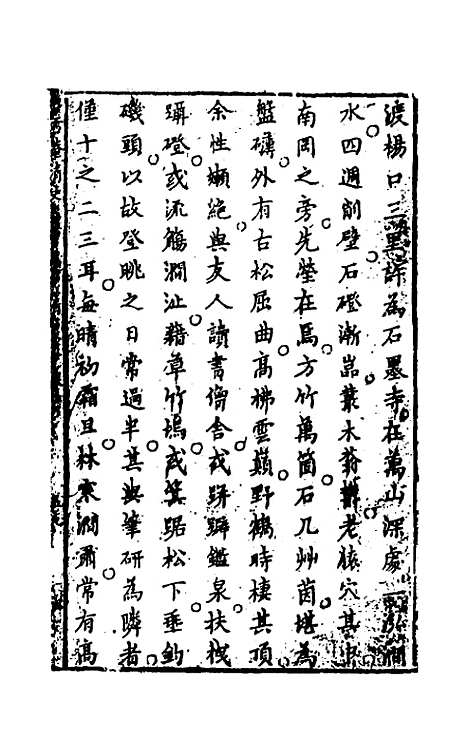 渡楊口三里許為石墨寺在萬山深處
水四週削壁石磴漸嵓叢木蓊鬱老猿穴其中
南岡之旁先塋在焉方竹萬箇石几艸茵堪為
盤礴外有古松屈曲高拂雲巔野鶴時棲其頂
余性嬾絕與友人讀書僧舍或跡躃鑑泉扶筏
躡磴或流觴澗沚藉草竹塢或箕踞松下垂釣
磯頭以故登眺之日常過半其與筆研為隣者
僅十之二三耳每晴初霜旦林寒澗肅常有高